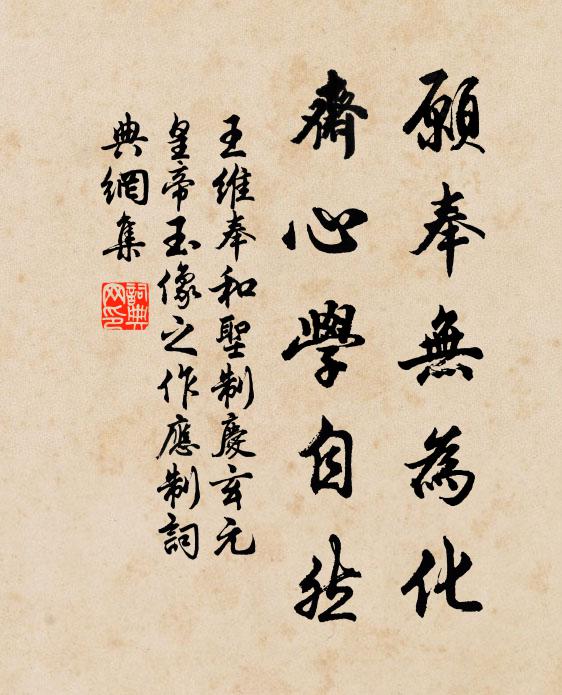 願奉無為化
齋心學自然
王維奉和聖制慶玄元
皇帝玉像之作應制詞
典網集
詞典網印